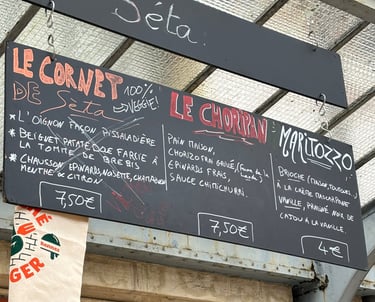 Séta.
LE CORNET
DE Séta
100%
VEGGIE!
* L'OIGNON FAÇON PISSALADIÈRE
* BEIGNET PATATE DOUCE FARCIE À
LA TOMME DE BREBIS
* CHAUSSON EPINARDS, NOISETTE,
MENTHE & CITRON
7,50€
LE CHORIPAN
PAIN MAISON,
CHORIZO FRAI GRILLÉ,
EPINARDS FRAIS,
SAUCE CHIMICHURRI.
7,50€
MARITOZZO
BRIOCHE (MAISON, TOUJOURS)
À LA CRÈME MASCARPONE
VANILLE, PRALINÉ NOIX DE
CAJOU À LA VANILLE.
4€